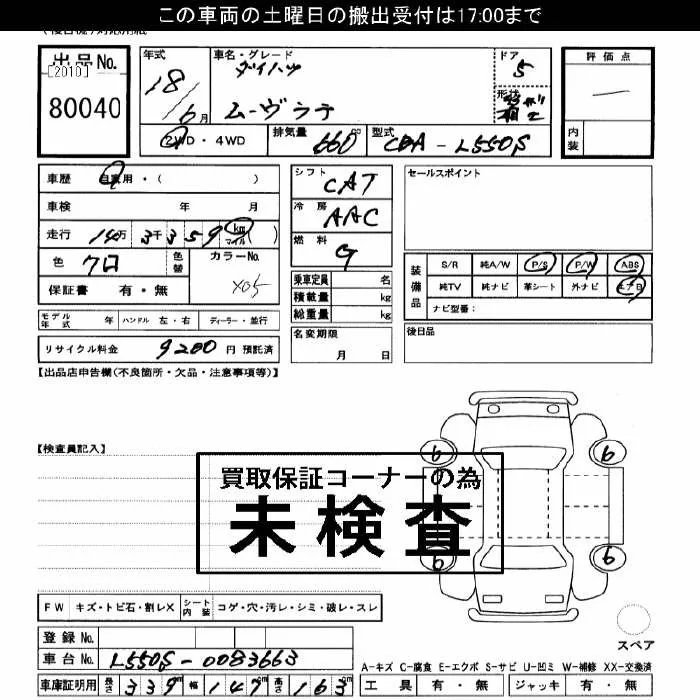 この車両の土曜日の搬出受付は17:00まで
出品No.
[2010]
80040
年式
18/6月
車名・グレード
ダイハツ
ムーヴラテ
ドア
5
形状
評価点
内装
2WD・4WD
排気量 660 cc
型式 CBA-L550S
車歴 自家用・( )
車検 年 月
走行 14万3千359 km マイル ( )
色 クロ
色替
カラーNo.
X05
保証書 有・無
シフト
CAT
冷房
AAC
燃料
G
乗車定員 名
積載量 kg
総重量 kg
セールスポイント
装備品
S/R 純A/W P/S P/W ABS
純TV 純ナビ 革シート 外ナビ エアB
ナビ型番:
モデル年式 年 ハンドル 左・右 ディーラー・並行
リサイクル料金 9200 円 預託済
名変期限
月 日
後日品
【出品店申告欄(不良箇所・欠品・注意事項等)】
【検査員記入】
買取保証コーナーの為
未検査
6
6
6
6
FW キズ・トビ石・割レX シート内装 コゲ・穴・汚レ・シミ・破レ・スレ
登録No.
車台No. L550S-0083663
車庫証明用 長さ 339cm 幅 147cm 高さ 163cm
スペア
A-キズ C-腐食 E-エクボ S-サビ U-凹ミ W-補修 XX-交換済
工具 有・無 ジャッキ 有・無